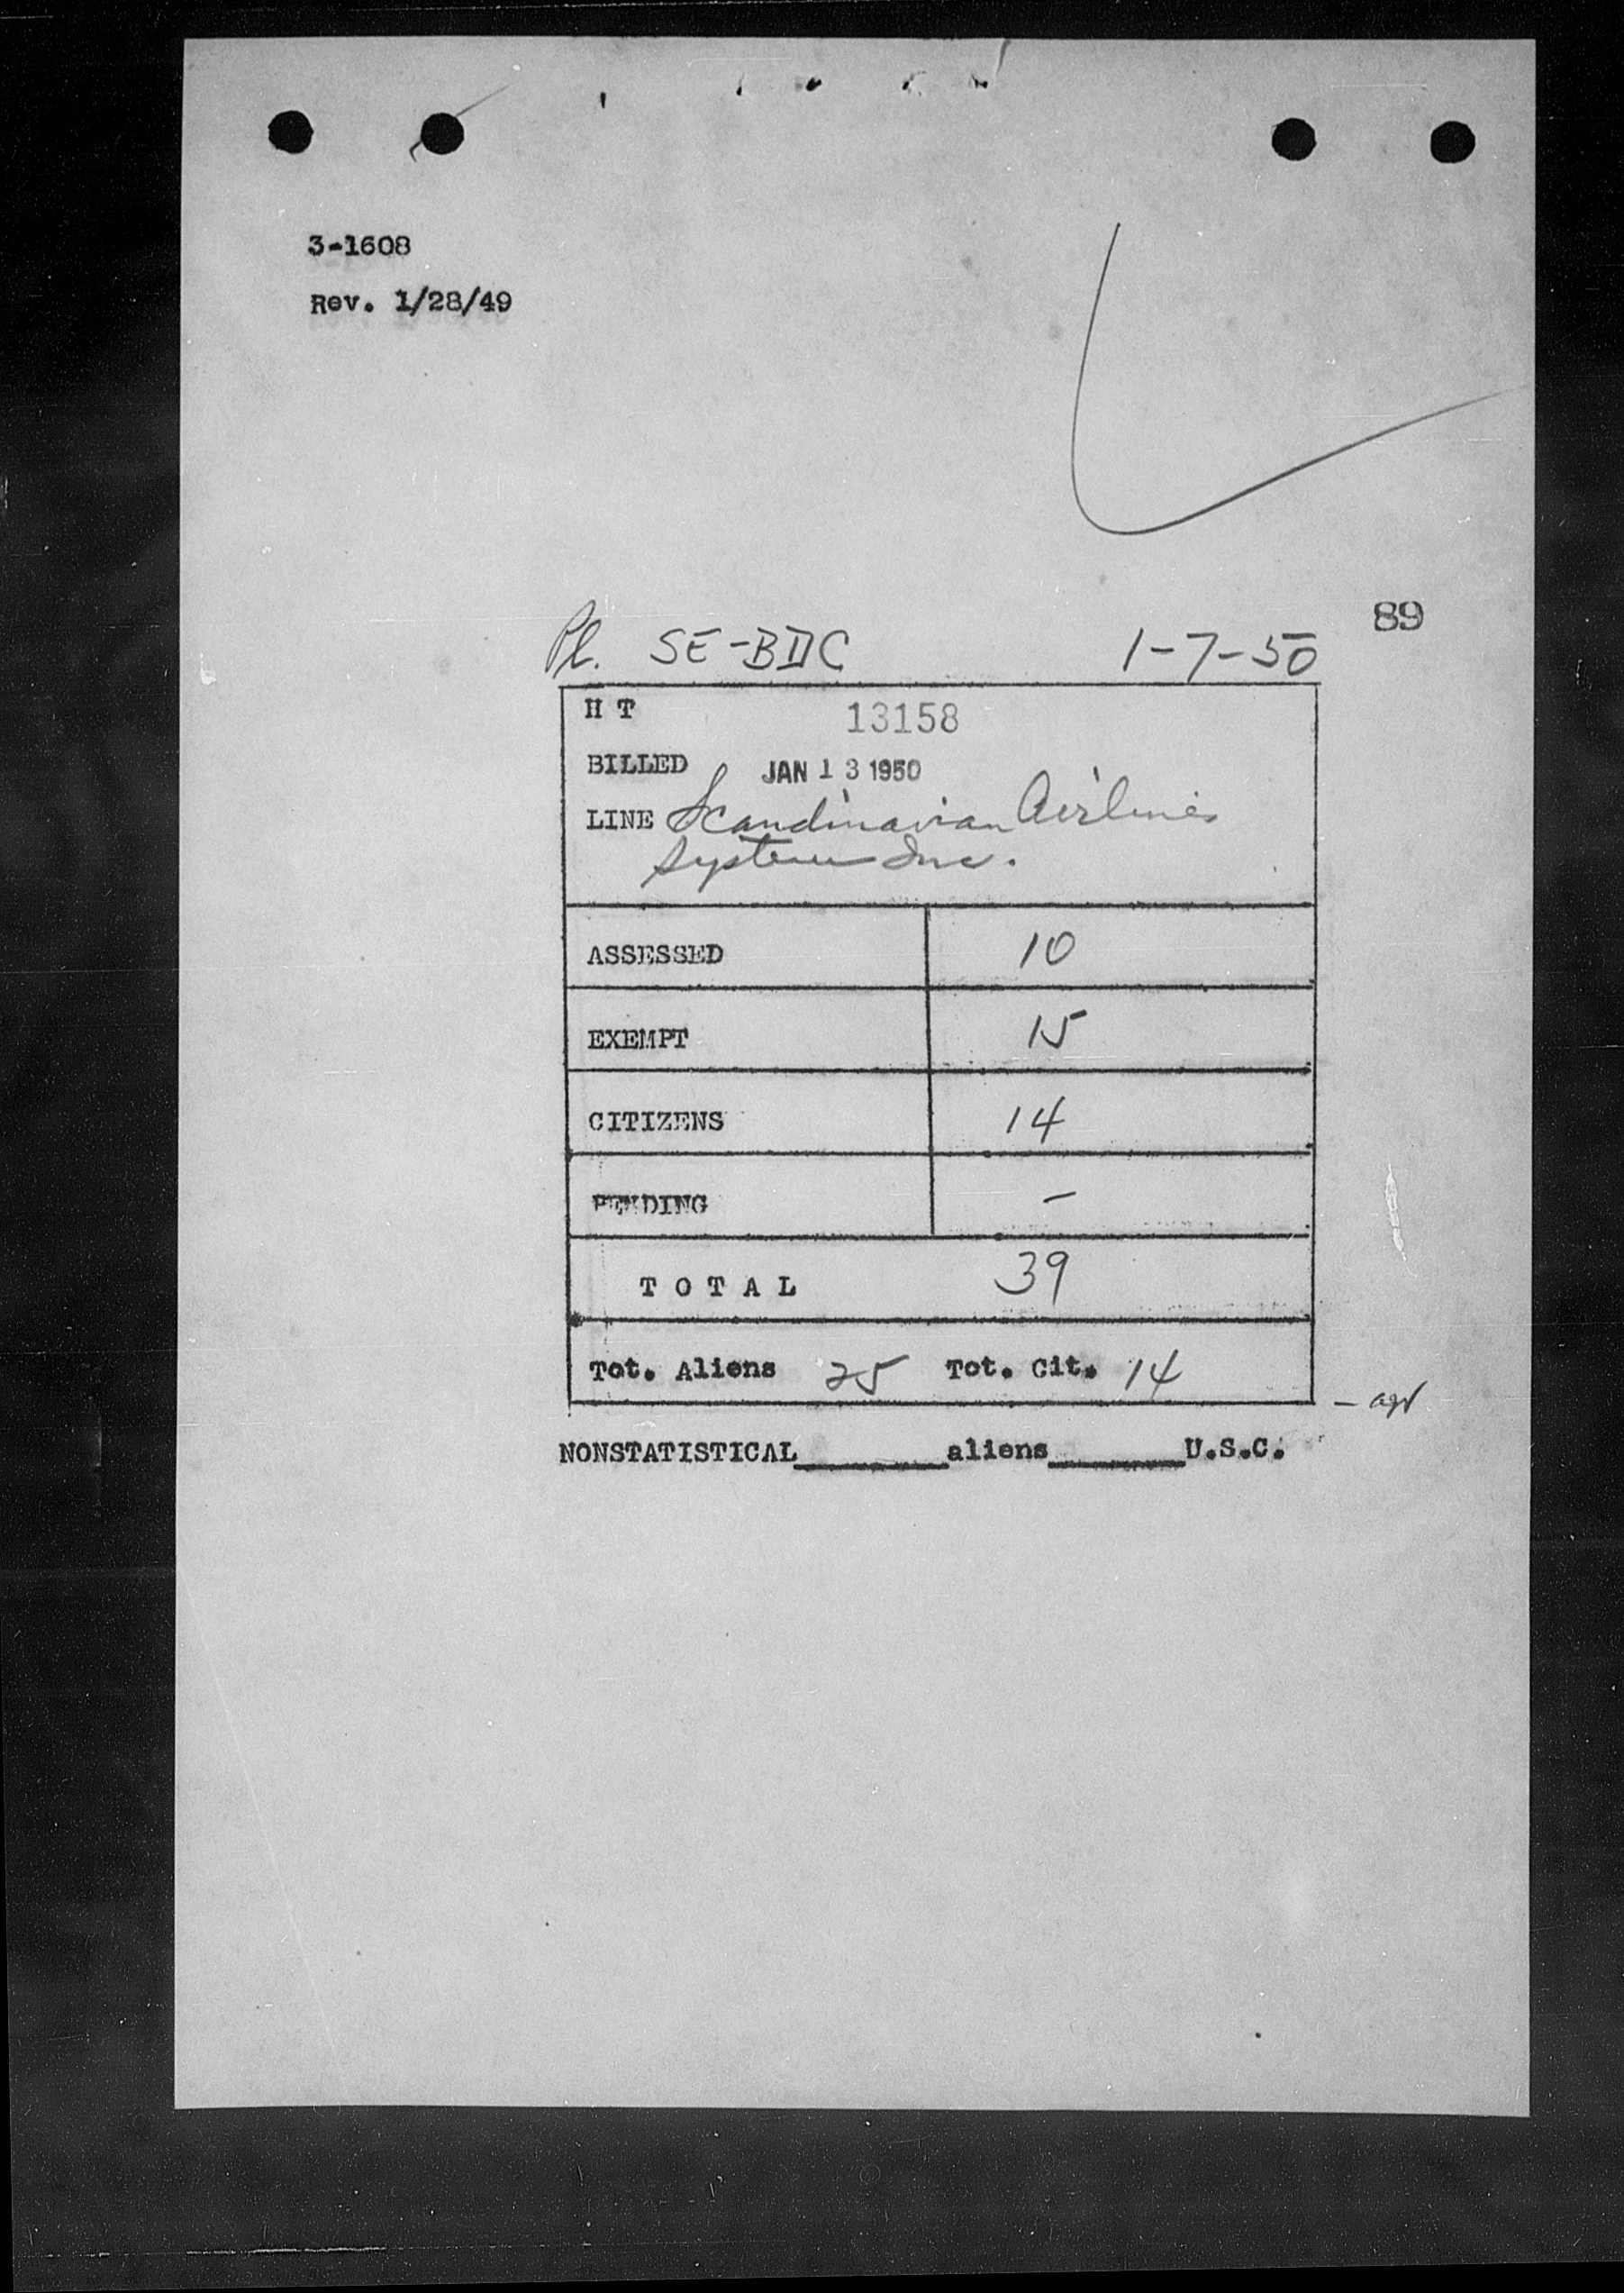 3-1608
Rev. 1/28/49
89
Pl. SE-BDC 1-7-50
H T 13158
BILLED JAN 13 1950
LINE Scandinavian Airlines
System Inc.
ASSESSED 10
EXEMPT 15
CITIZENS 14
PENDING -
TOTAL 39
Tot. Aliens 25 Tot. Cit. 14
NONSTATISTICAL________aliens________U.S.C.